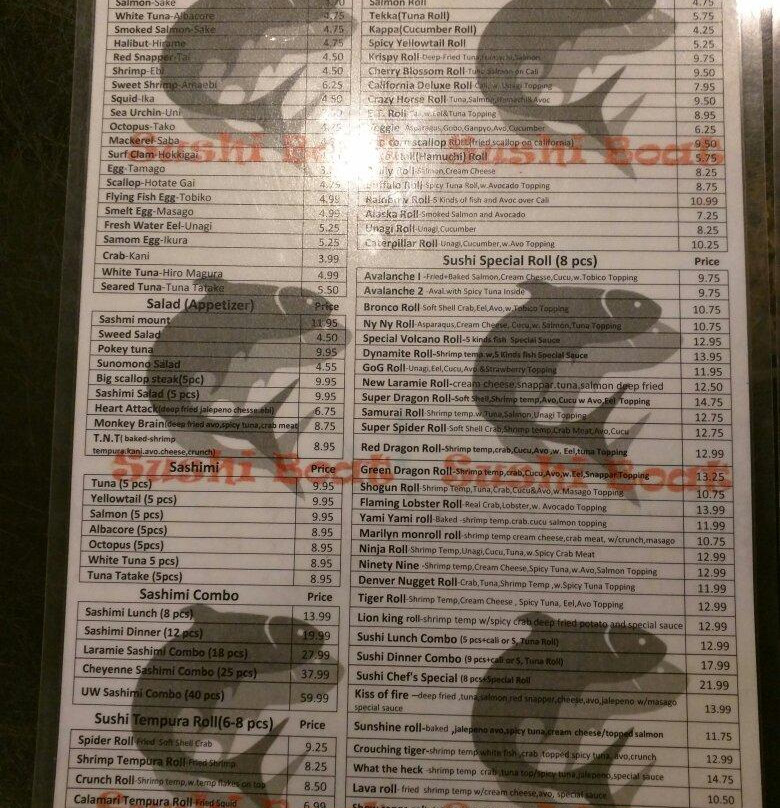 Salmon-Sake
White Tuna-Albacore 4.75
Smoked Salmon-Sake 4.75
Halibut-Hirame 4.75
Red Snapper-Tai 4.50
Shrimp-Ebi 4.50
Sweet Shrimp-Amaebi 6.25
Squid-Ika 4.50
Sea Urchin-Uni
Octopus-Tako
Mackerel-Saba
Surf Clam-Hokkigai
Egg-Tamago
Scallop-Hotate Gai 4.75
Flying Fish Egg-Tobiko 4.99
Smelt Egg-Masago 4.99
Fresh Water Eel-Unagi 5.25
Samom Egg-Ikura 5.25
Crab-Kani 3.99
White Tuna-Hiro Magura 4.99
Seared Tuna-Tuna Tatake 5.50
Salad (Appetizer) Price
Sashmi mount 11.95
Sweed Salad 4.50
Pokey tuna 9.95
Sunomono Salad 4.55
Big scallop steak(5pc) 9.95
Sashimi Salad (5 pcs) 9.95
Heart Attack(deep fried jalepeno chesse,ebi) 6.75
Monkey Brain(deep fried avo,spicy tuna,crab meat 8.75
T.N.T( baked-shrimp
tempura.kani.avo.cheese,crunch) 8.95
Sashimi Price
Tuna (5 pcs) 9.95
Yellowtail (5 pcs) 9.95
Salmon (5 pcs) 9.95
Albacore (5pcs) 8.95
Octopus (5pcs) 8.95
White Tuna 5 pcs) 8.95
Tuna Tatake (5pcs) 8.95
Sashimi Combo Price
Sashimi Lunch (8 pcs) 13.99
Sashimi Dinner (12 pcs) 19.99
Laramie Sashimi Combo (18 pcs) 27.99
Cheyenne Sashimi Combo (25 pcs) 37.99
UW Sashimi Combo (40 pcs) 59.99
Sushi Tempura Roll(6-8 pcs) Price
Spider Roll-Fried Soft Shell Crab 9.25
Shrimp Tempura Roll-Fried Shrimp 8.25
Crunch Roll-Shrimp temp,w.temp flakes on top 8.50
Calamari Tempura Roll-Fried Squid 6.99
Salmon Roll 4.75
Tekka(Tuna Roll) 5.75
Kappa(Cucumber Roll) 4.25
Spicy Yellowtail Roll 5.25
Krispy Roll-Deep-Fried Tuna,Hamachi,Salmon 9.75
Cherry Blossom Roll-Tuna,Salmon on Cali 9.50
California Deluxe Roll-Cali,w.Unagi Topping 7.95
Crazy Horse Roll-Tuna,Salmon,Hamachi&Avoc 9.50
E.T. Roll-Cali,w.eel&Tuna Topping 8.95
Veggie-Asparagus,Gobo,Ganpyo,Avo,Cucumber 6.25
scallop Roll(fried scallop on california) 9.50
(Hamachi) Roll 5.75
Roll-Salmon,Cream Cheese 8.25
Buffalo Roll-Spicy Tuna Roll,w.Avocado Topping 8.75
Rainbow Roll-5 Kinds of fish and Avoc over Cali 10.99
Alaska Roll-Smoked Salmon and Avocado 7.25
Unagi Roll-Unagi,Cucumber 8.25
Caterpillar Roll-Unagi,Cucumber,w.Avo Topping 10.25
Sushi Special Roll (8 pcs) Price
Avalanche I -Fried+Baked Salmon,Cream Chesse,Cucu,w.Tobico Topping 9.75
Avalanche 2 -Aval.with Spicy Tuna Inside 9.75
Bronco Roll-Soft Shell Crab,Eel,Avo,w.Tobico Topping 10.75
Ny Ny Roll-Asparaqus,Cream Cheese, Cucu,w. Salmon,Tuna Topping 10.75
Special Volcano Roll-5 kinds fish Special Sauce 12.95
Dynamite Roll-Shrimp temp.w,5 Kinds fish Special Sauce 13.95
GoG Roll-Unagi,Eel,Cucu,Avo.&Strawberry Topping 11.95
New Laramie Roll-cream cheese.snappar,tuna,salmon deep fried 12.50
Super Dragon Roll-Soft Shell,Shrimp temp,Avo,Cucu w Avo,Eel Topping 14.75
Samurai Roll-Shrimp temp.w/Tuna,Salmon,Unagi Topping 12.75
Super Spider Roll-Soft Shell Crab,Shrimp temp,Crab Meat,Avo,Cucu 12.75
Red Dragon Roll-Shrimp temp,crab,Cucu,Avo ,w. Eel,tuna Topping 12.99
Green Dragon Roll-Shrimp temp,crab,Cucu,Avo,w.Eel,SnapparTopping 13.25
Shogun Roll-Shrimp Temp,Tuna,Crab,Cucu&Avo,w.Masago Topping 10.75
Flaming Lobster Roll-Real Crab,Lobster,w. Avocado Topping 13.99
Yami Yami roll-Baked -shrimp temp.crab.cucu salmon topping 11.99
Marilyn monroll roll-shrimp temp cream cheese,crab meat, w/crunch,masago 10.75
Ninja Roll-Shrimp Temp,Unagi,Cucu,Tuna,w.Spicy Crab Meat 12.99
Ninety Nine-Shrimp temp,Cream Cheese,Spicy Tuna,w.Avo,Salmon Topping 12.99
Denver Nugget Roll-Crab,Tuna,Shrimp Temp ,w.Spicy Tuna Topping 11.99
Tiger Roll-Shrimp Temp,Cream Cheese , Spicy Tuna, Eel,Avo Topping 12.99
Lion king roll-shrimp temp w/spicy crab deep fried potato and special sauce 12.99
Sushi Lunch Combo (5 pcs+cali or S, Tuna Roll) 12.99
Sushi Dinner Combo (9 pcs+cali or S, Tuna Roll) 17.99
Sushi Chef's Special (8 pcs+Special Roll 21.99
Kiss of fire –deep fried ,tuna,salmon,red snapper,cheese,avo,jalepeno w/masago
special sauce 13.99
Sunshine roll-baked ,jalepeno avo,spicy tuna,cream cheese/topped salmon 11.75
Crouching tiger-shrimp temp white fish ,crab ,topped spicy tuna,avo,crunch 12.99
What the heck -shrimp temp crab,tuna top/spicy tuna,jalepeno,special sauce 14.75
Lava roll- fried shrimp temp w/cream cheese,avo, special sauce 10.50
Sushi Boat
Sushi Boat
Sushi Boat
Sushi Boat